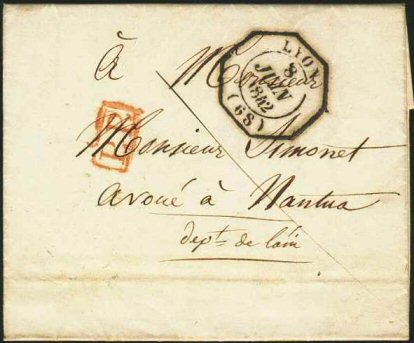 à Monsieur
LYON
8
JUIN
1842
(68)
PP
Monsieur Simonet
avoué à Nantua
dept. de l'ain